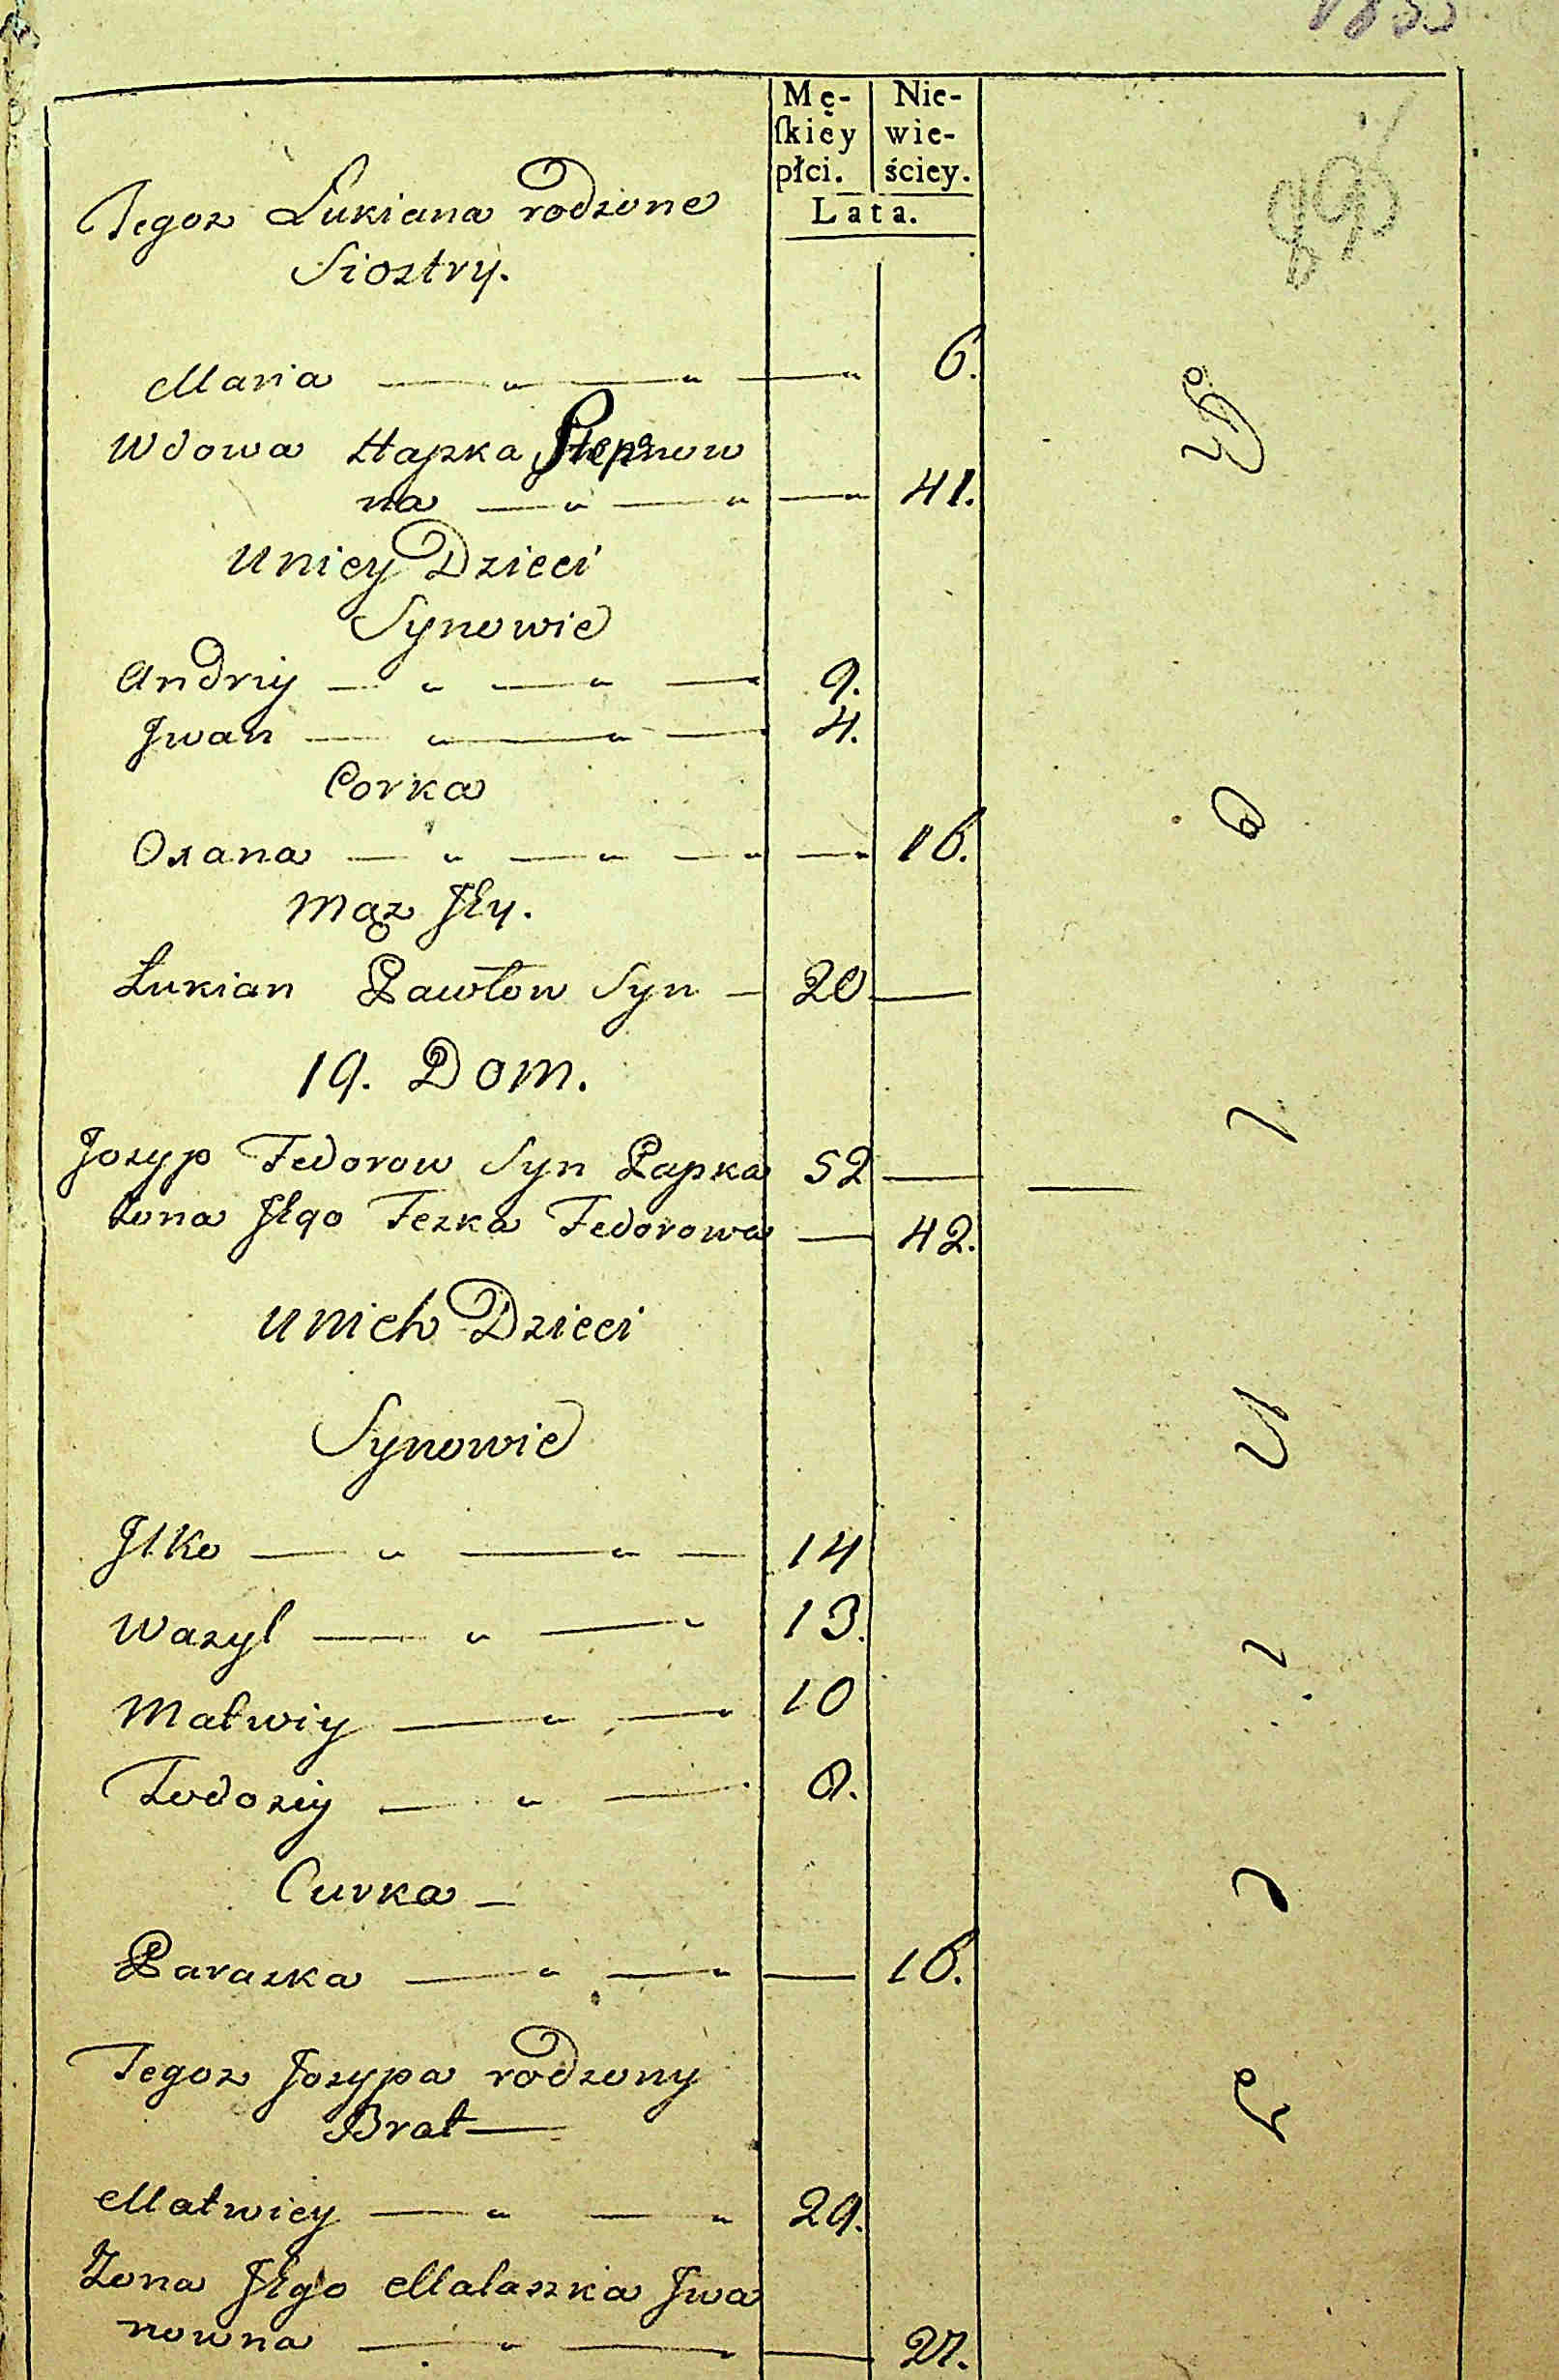 Mę- Nie-
ſkiey wie-
płci. ściey.
Lata.
Tegoz Łukiana rodzone
Siostry.
Maria — „ — „ — „ 6.
Wdowa Hapka Stepanow
na — „ — „ — „ 41.
Uniey Dzieci
Synowie
Andriy — „ — „ — 9.
Jwan — „ — „ — 4.
Corka
Oxana — „ — „ — „ — „ 16.
Mąz Jey.
Łukian Pawłow Syn — 20 —
19. Dom.
Jozyp Fedorow Syn Papka 52 — —
Zona Jego Tezka Fedorowa — 42.
Unich Dzieci
Synowie
Jlko — „ — „ — 14
Wasyl — „ — „ 13.
Matwiy — „ — „ 10
Todoziy — „ — 8.
Curka —
Paraska — „ — „ — 16.
Tegoz Jozypa rodzony
Brat —
Matwiey — „ — „ 29.
Zona Jego Malaszka Jwa
nowna — „ — „ — 27.